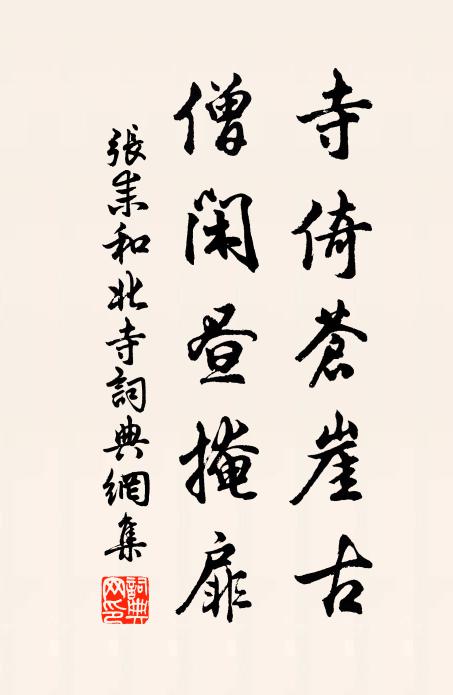 寺倚蒼崖古
僧閑晝掩扉
張耒和北寺詞典網集
詞典網印